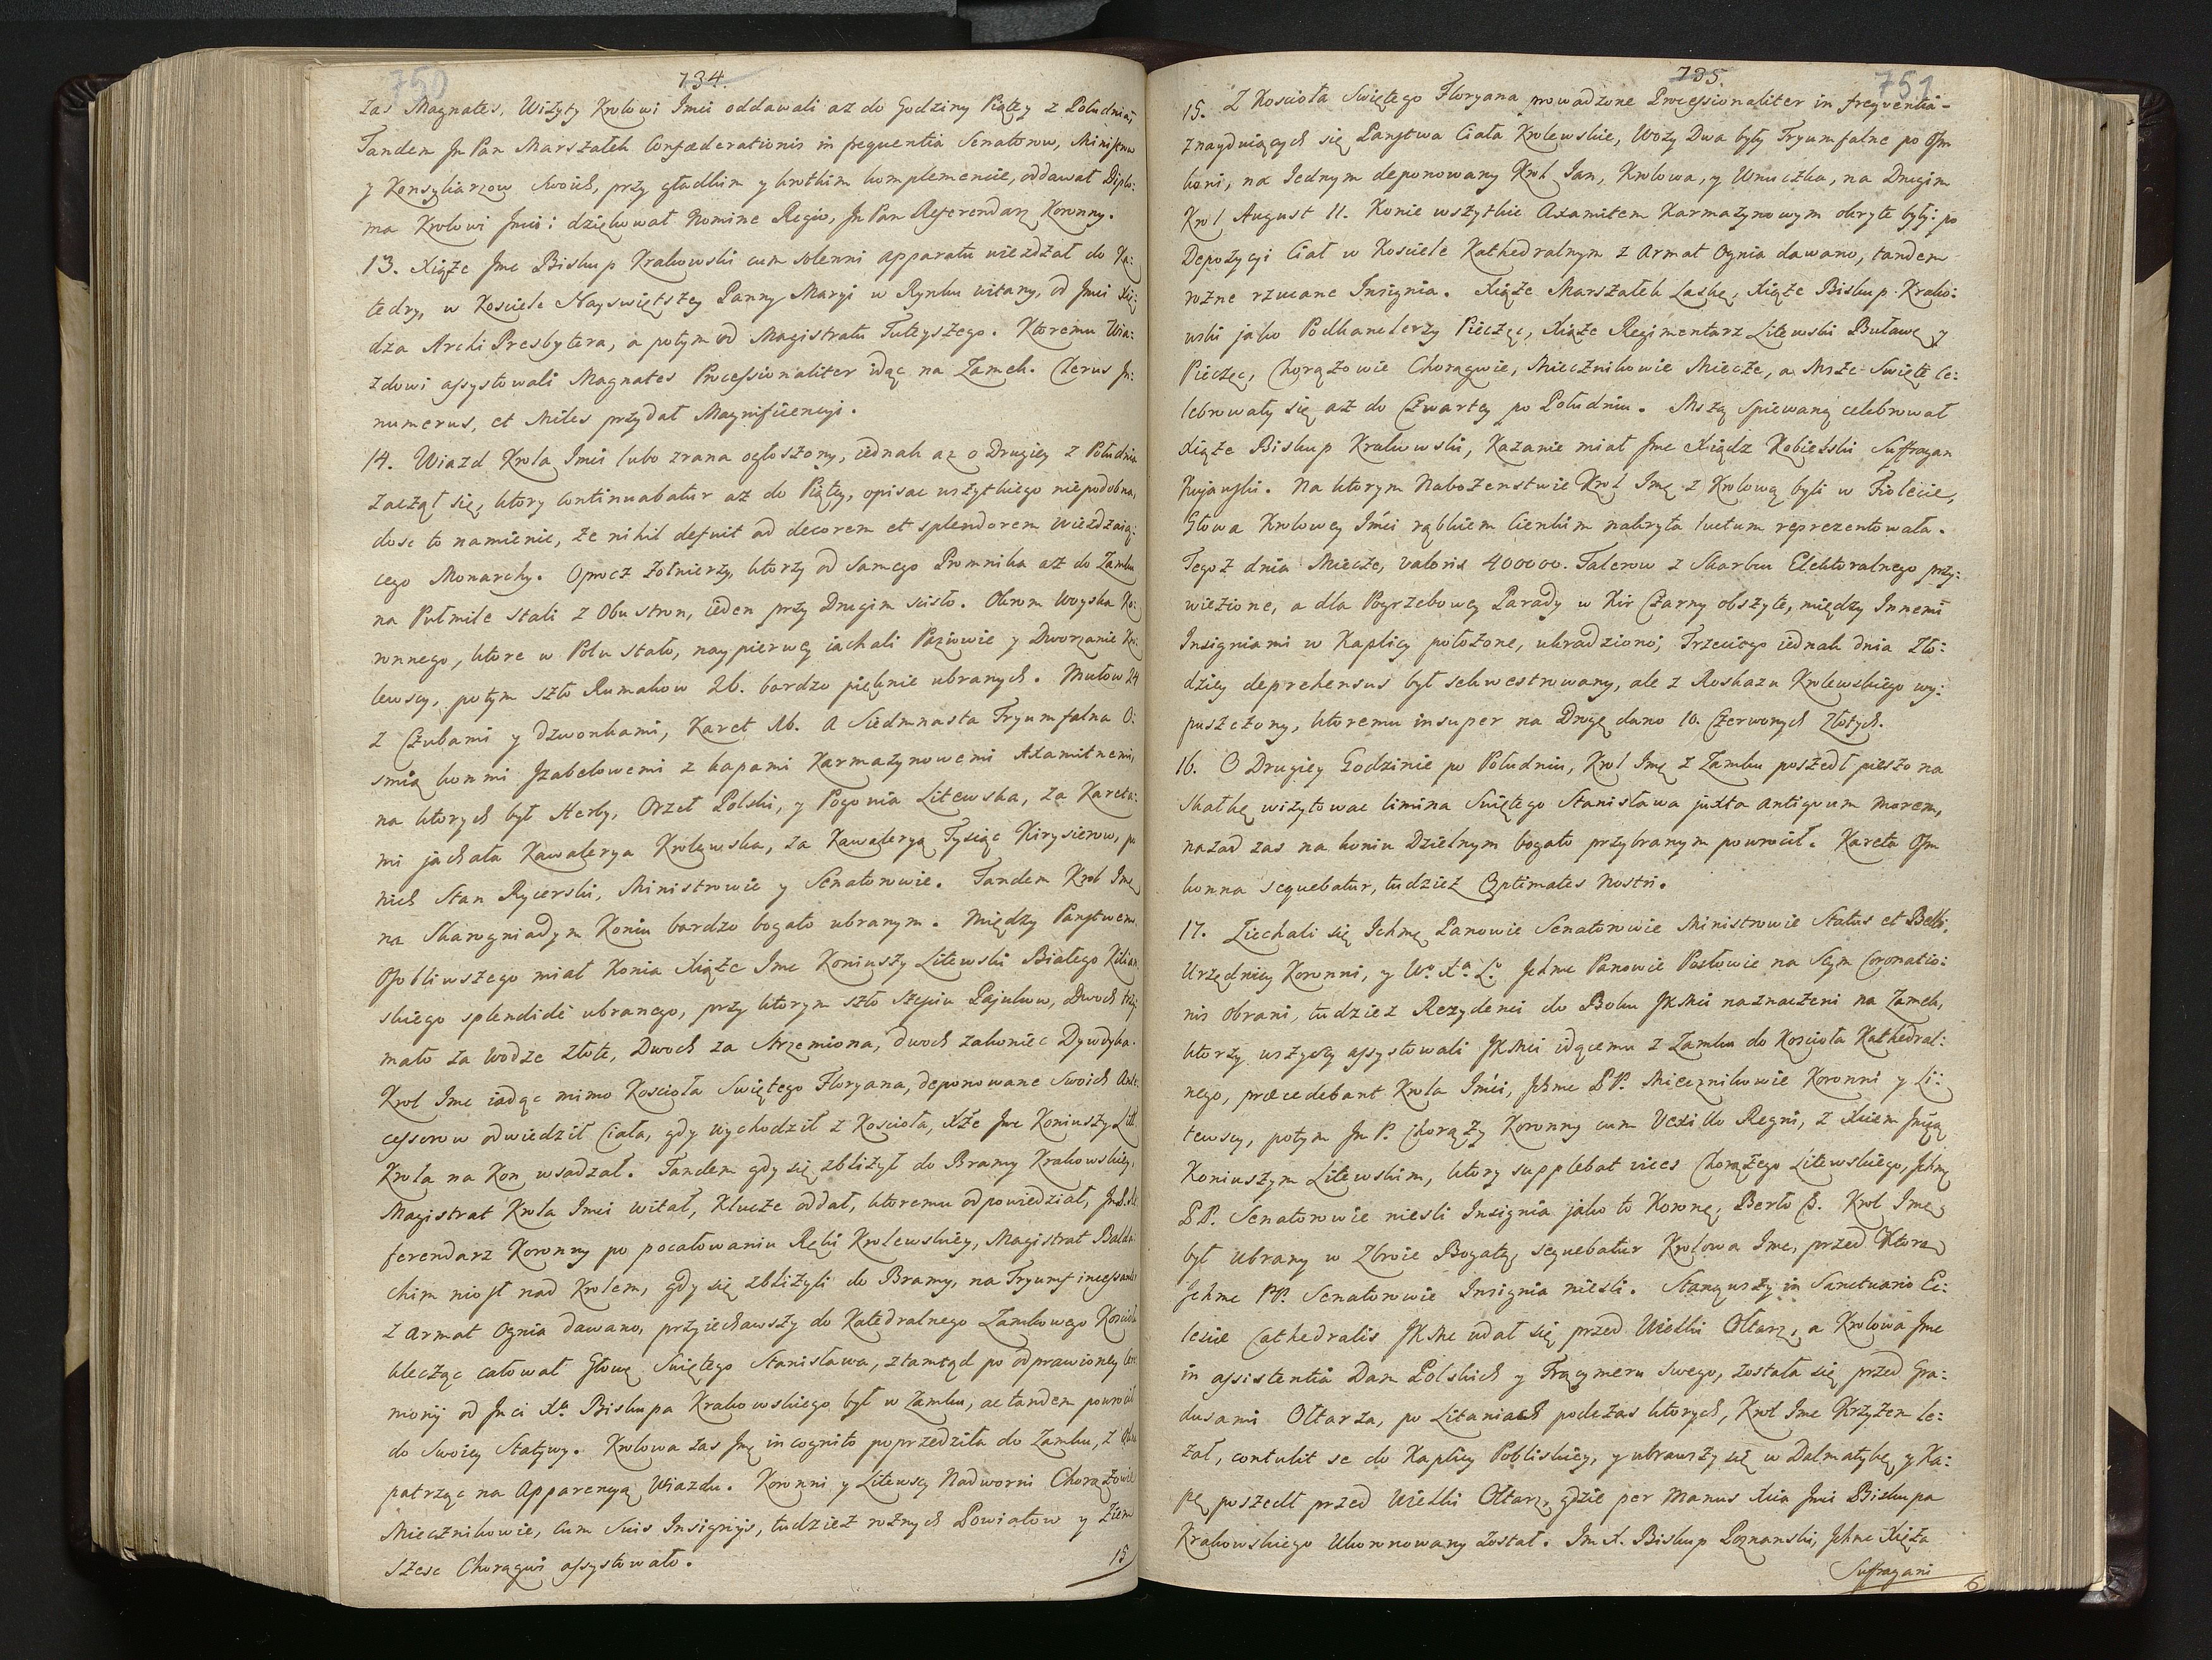 750
734.
zas Magnates, Wizyty Krolowi Imci oddawali az do Godziny Piątey z Południa,
Tandem Jm Pan Marszałek Confæderationis in frequentia Senatorow, Ministrow
y Konsyliarzow Swoich, przy gładkim y krotkim komplemencie, oddawał Diplo:
ma Krolowi Jmci: dziękował Nomine Regio, Jm Pan Referendarz Koronny.
13. Xiąże Jmc Biskup Krakowski cum solenni apparatu wieżdżał do Ka:
tedry, w Kosciele Nayswiętszey Panny Maryi w Rynku witany, od Jmci Xię:
dza Archi Presbytera, a potym od Magistratu Tuteyszego. Ktoremu Wia:
zdowi assystowali Magnates Processionaliter idąc na Zamek. Clerus In:
numerus, et Miles przydał Magnificencyi.
14. Wiazd Krola Imci lubo zrana ogłoszony, iednak az o Drugiey z Południa
zaczął się, ktory continuabatur az do Piątey, opisac wszytkiego niepodobna,
dosc to namienic, że nihil defuit ad decorem et splendorem wieżdzaią:
cego Monarchy. Oprocz Żołnierzy, ktorzy od Samego Promnika aż do Zamku
na Pułmile stali z Obu stron, ieden przy Drugim scisło. Okrom Woyska Ko:
ronnego, ktore w Polu Stało, naypierwey iachali Paziowie y Dworzanie Kro:
lewscy, potym szło Rumakow 26. bardzo pięknie ubranych. Mułow 24
z Czubami y dzwonkami, Karet 16. A Siedmnasta Tryumfalna O:
smią konmi Izabelowemi z kapami Karmazynowemi Axamitnemi,
na ktorych był Herby, Orzeł Polski, y Pogonia Litewska, za Kareta:
mi jachała Kawalerya Krolewska, za Kawaleryą Tysiąc Kirysierow, po
nich Stan Rycerski, Ministrowie y Senatorowie. Tandem Krol Jmc
na Skarogniadym Koniu bardzo bogato ubranym. Między Panstwem
Osobliwszego miał Konia Xiąże Jmc Koniuszy Litewski Białego
skiego splendide ubranego, przy ktorym szło szesciu Pajukow, Dwoch trzy:
mało za Wodze złote, Dwoch za Strzemiona, dwoch zakoniec Dywdyka.
Krol Jmc iadąc mimo Kosciola Swiętego Floryana, deponowane Swoich Ante:
cessorow odwiedził Ciała, gdy wychodził z Kosciola, Xże Jmc Koniuszy Litt.
Krola na Kon wsadzał. Tandem gdy się zbliżył do Bramy Krakowskiey,
Magistrat Krola Imci witał, Klucze oddał, ktoremu odpowiedział, Jm P. Re
ferendarz Koronny po pocałowaniu Ręki Krolewskiey, Magistrat Balda:
chim niosł nad Krolem, gdy się zbliżyli do Bramy, na Tryumf incessanter
z Armat Ognia dawano, przyiechawszy do Katedralnego Zamkowego Kosciola
klecząc całował Głowę Swiętego Stanisława, ztamtąd po odprawioney Cere:
monij od Jmci Xa. Biskupa Krakowskiego był w Zamku, ac tandem powrocił
do Swoiey Statywy. Krolowa zas Jmc incognito poprzedziła do Zamku, z Okna
patrząc na Apparencyą Wiazdu. Koronni y Litewscy Nadworni Chorążowie
Miecznikowie, cum Suis Insignijs, tudziez rożnych Powiatow y Ziem
szesc Chorągwi assystowało.
15
735.
751
15. Z Kosciola Swiętego Floryana prowadzone Processionaliter in frequentia
znayduiących się Panstwa Ciała Krolewskie, Wozy Dwa były Tryumfalne po Osm
koni, na Jednym deponowany Krol Jan, Krolowa, y Wnuczka, na Drugim
Krol August II. Konie wszytkie Axamitem Karmazynowym okryte były: po
Depozycyi Ciał w Kosciele Kathedralnym z Armat Ognia dawano, tandem
rożne rzucane Insignia. Xiąże Marszałek Laskę, Xiąże Biskup Krako:
wski jako Podkanclerzy Pieczęc, Xiąże Regimentarz Litewski Buławę y
Pieczęc, Chorążowie Chorągwie, Miecznikowie Miecze, a Msze Swięte ce:
lebrowały się aż do Czwartey po Południu. Mszą Spiewaną celebrował
Xiąże Biskup Krakowski, Kazanie miał Jmc Xiądz Kobielski Suffragan
Kujawski. Na ktorym Nabożenstwie Krol Jmc z Krolową byli w Fiolecie,
Głowa Krolowey Jmci rąbkiem cienkim nakryta luctum reprezentowała.
Tegoż dnia Miecze, valoris 400000. Talerow z Skarbu Elektoralnego przy:
wiezione, a dla Pogrzebowey Parady w Kir Czarny obszyte, między Innemi
Insigniami w Kaplicy położone, ukradziono; Trzeciego iednak dnia Zło:
dziey deprehensus był sekwestrowany, ale z Roskazu Krolewskiego wy:
puszczony, ktoremu insuper na Drogę dano 10. Czerwonych Złotych.
16. O Drugiey Godzinie po Południu, Krol Jmc z Zamku poszedł pieszo na
Skałkę wizytowac limina Swiętego Stanisława juxta antiquum morem,
nazad zas na koniu Dzielnym bogato przybranym powrocił. Kareta Osm
konna sequebatur, tudziez Optimates Nostri.
17. Ziechali się Ichmc Panowie Senatorowie Ministrowie Status et Belli,
Urzędnicy Koronni, y Wo. Xa. Lo. Jchmc Panowie Posłowie na Seym Coronatio:
nis obrani, tudziez Rezydenci do Boku JKMci naznaczeni na Zamek,
ktorzy wszyscy assystowali JKMci idącemu z Zamku do Kosciola Kathedral:
nego, præcedebant Krola Imci, Jchmc PP. Miecznikowie Koronni y Li:
tewscy, potym Jm P. Chorąży Koronny cum Vexillo Regni, z Xciem Jmcią
Koniuszym Litewskim, ktory supplebat vices Chorążego Litewskiego, Jchmc
PP. Senatorowie niesli Insignia jako to Koronę, Berło &. Krol Jmc
był ubrany w Zbroie Bogatą, sequebatur Krolowa Jmc, przed Ktorą
Jchmc PP. Senatorowie Insignia niesli. Stanąwszy in Sanctuario Ec:
lesiæ Cathedralis JKMc udał się przed Wielki Ołtarz, a Krolowa Jmc
in assistentia Dam Polskich y Fracymeru Swego, została się przed Gra:
dusami Ołtarza, po Litaniach podczas ktorych, Krol Jmc Krzyżem le:
żał, contulit se do Kaplicy Pobliskiey, y ubrawszy się w Dalmatykę y Ka:
pę poszedł przed Wielki Ołtarz, gdzie per manus Xcia Jmci Biskupa
Krakowskiego Ukoronowany został. Jm X. Biskup Poznanski, Jchmc Xięża
Suffragani
6